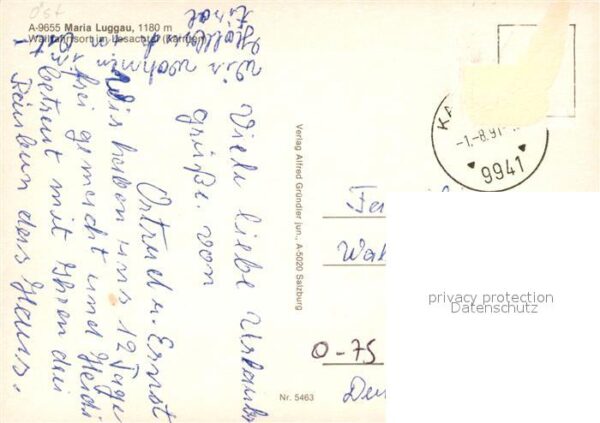 A-9655 Maria Luggau, 1180 m
Wallfahrtsort im Lesachtal (Kärnten)
Viele liebe Urlaubs
grüße von
Ortrud u. Ernst
Wir haben uns 12 Tage
frei gemacht und Heidi
betreut mit Ihren drei
das Haus.
Wir wohnen
in
Verlag Alfred Gründler jun., A-5020 Salzburg
Nr. 5463
KA
-1.-8.91-
9941
Fa
Wal
O-75
Deu
privacy protection
Datenschutz